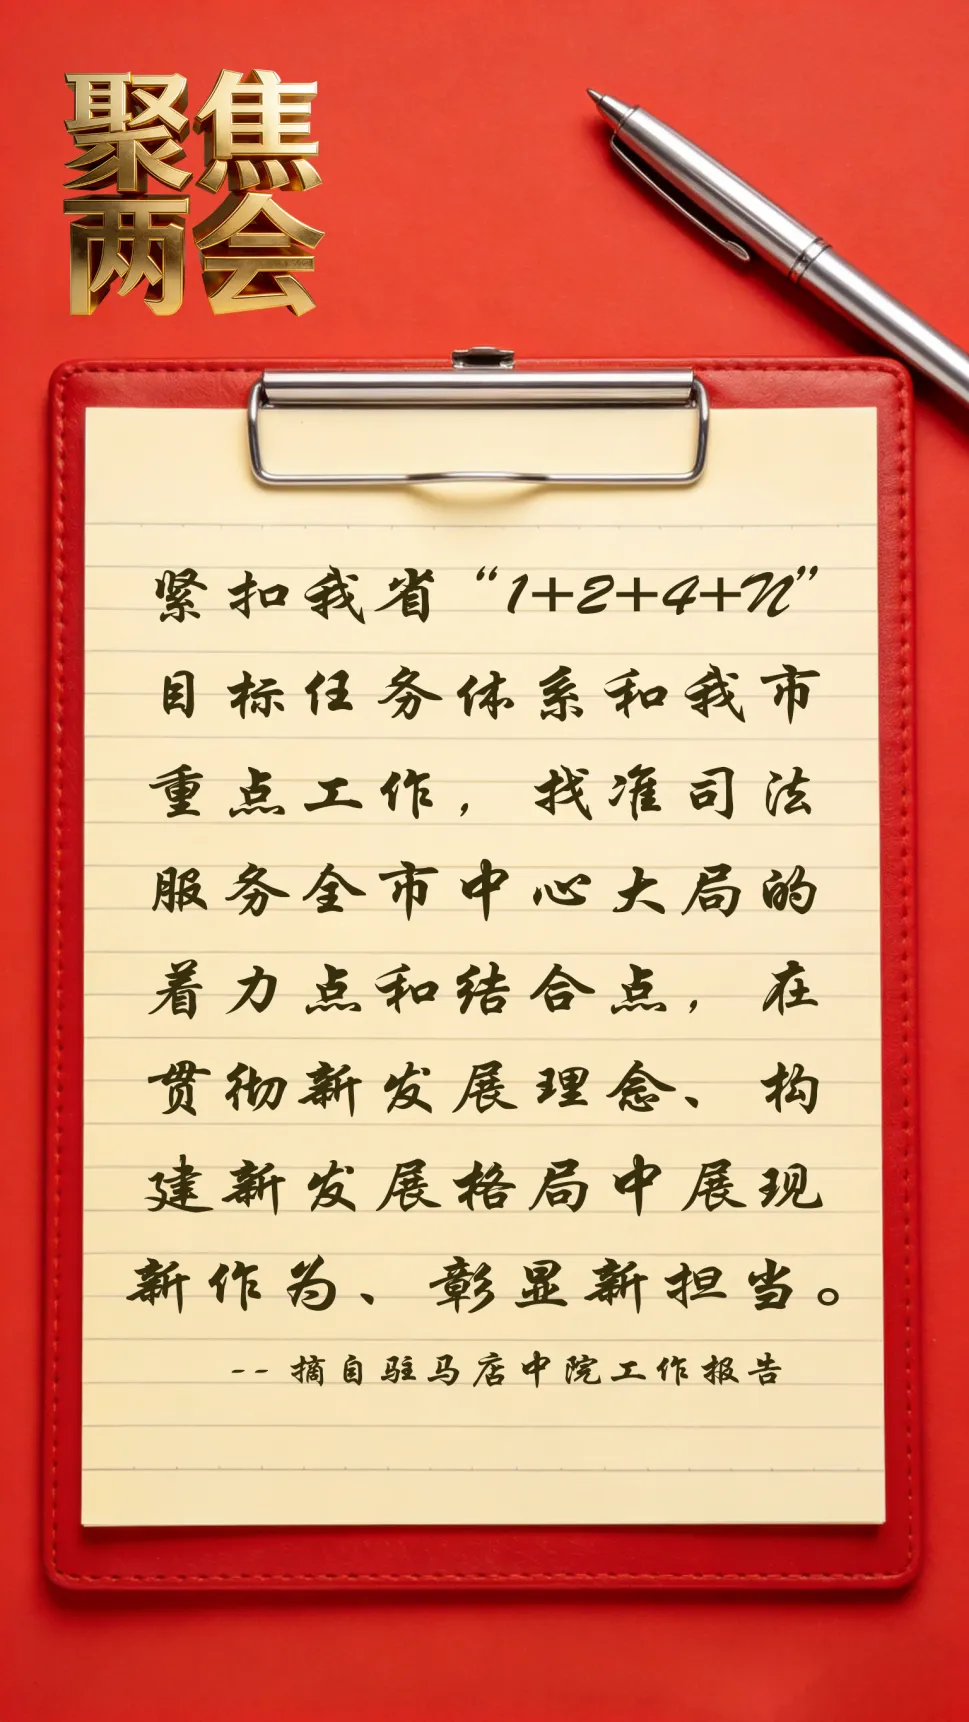 聚焦
两会
紧扣我省“1+2+4+N”
目标任务体系和我市
重点工作，找准司法
服务全市中心大局的
着力点和结合点，在
贯彻新发展理念、构
建新发展格局中展现
新作为、彰显新担当。
--摘自驻马店中院工作报告